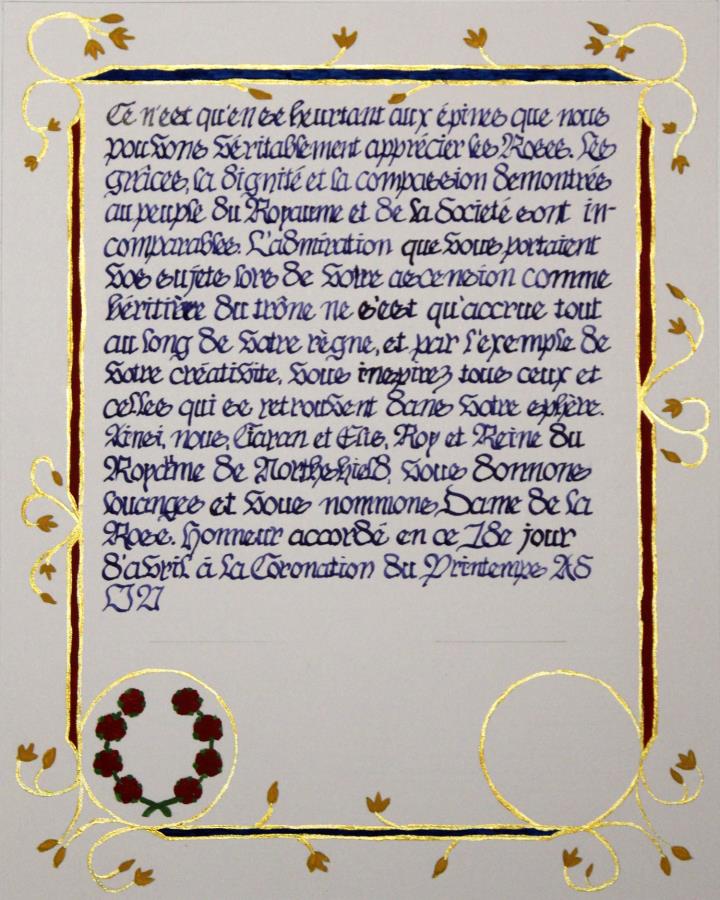 Ce n'est qu'en se heurtant aux épines que nous
pouvons véritablement apprécier les Roses. Les
grâces, la dignité et la compassion démontrées
au peuple du Royaume et de la Societé sont in-
comparables. L'admiration que vous portaient
vos sujets lors de votre ascension comme
héritière du trône ne s'est qu'accrue tout
au long de votre règne, et par l'exemple de
votre créativité, vous inspirez tous ceux et
celles qui se retrouvent dans votre sphère.
Ainsi, nous, Ciaran et Elis, Roy et Reine du
Royaume de Northshield, vous donnons
louanges et vous nommons Dame de la
Rose. Honneur accordé en ce 18e jour
d'avril à la Coronation du Printemps AS